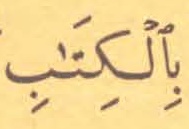 بِٱلْكِتَٰبِ